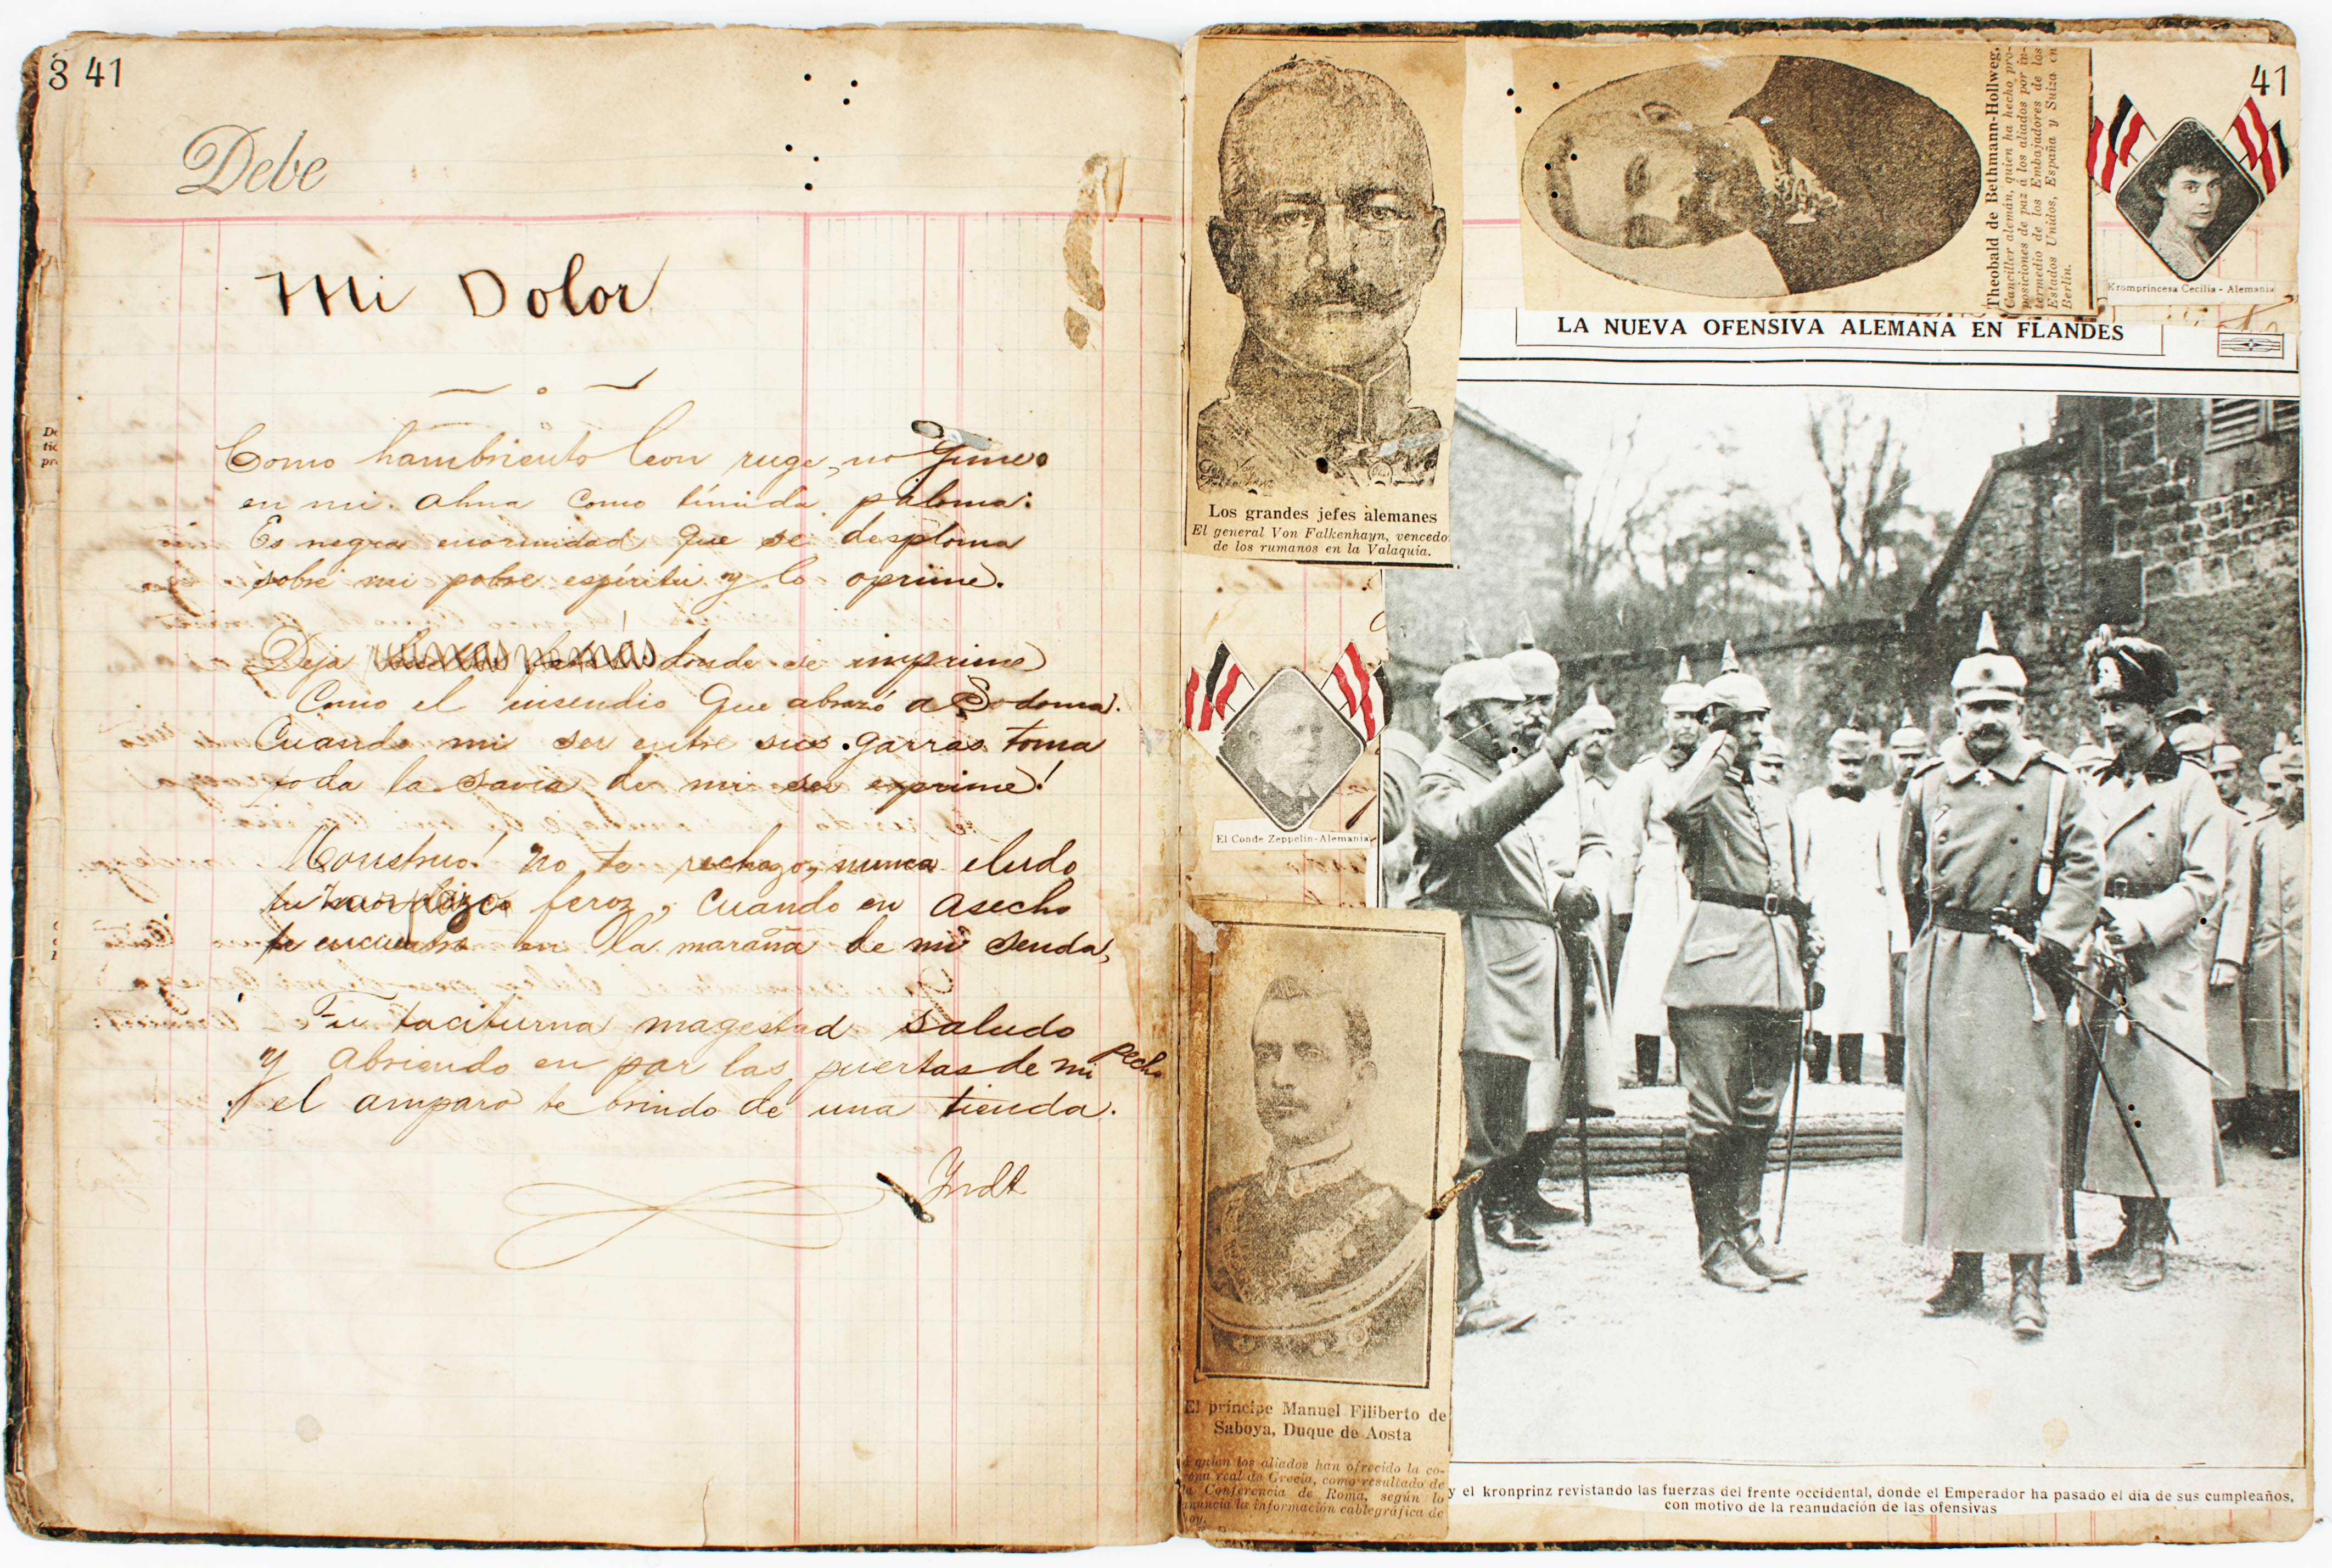 3 41
Debe
Mi Dolor
Como hambriento leon ruge, no gime
en mi alma como tímida paloma:
Es negra enormidad que se desploma
sobre mi pobre espíritu y lo oprime.
Deja donde se imprime
Como el insendio que abrazó a Sodoma.
Cuando mi ser entre sus garras toma
toda la savia de mi ser exprime!
Monstruo! no te rechazo, nunca eludo
tu mordizco feroz, cuando en asecho
te encuentro en la maraña de mi senda,
Tu taciturna magestad saludo
y abriendo en par las puertas de mi pecho
el amparo te brindo de una tienda.
41
Los grandes jefes alemanes
El general Von Falkenhayn, vencedo
de los rumanos en la Valaquia.
Theobald de Bethmann-Hollweg,
Canciller alemán, quien ha hecho pro-
posiciones de paz á los aliados por in-
termedio de los Embajadores de los
Estados Unidos, España y Suiza en
Berlin.
Kromprincesa Cecilia - Alemania
LA NUEVA OFENSIVA ALEMANA EN FLANDES
El Conde Zeppelin-Alemania
El príncipe Manuel Filiberto de
Saboya, Duque de Aosta
a quien los aliados han ofrecido la co-
rona real de Grecia, como resultado de
la Conferencia de Roma, según lo
anuncia la información cablegráfica de
oy.
y el kronprinz revistando las fuerzas del frente occidental, donde el Emperador ha pasado el día de sus cumpleaños,
con motivo de la reanudación de las ofensivas